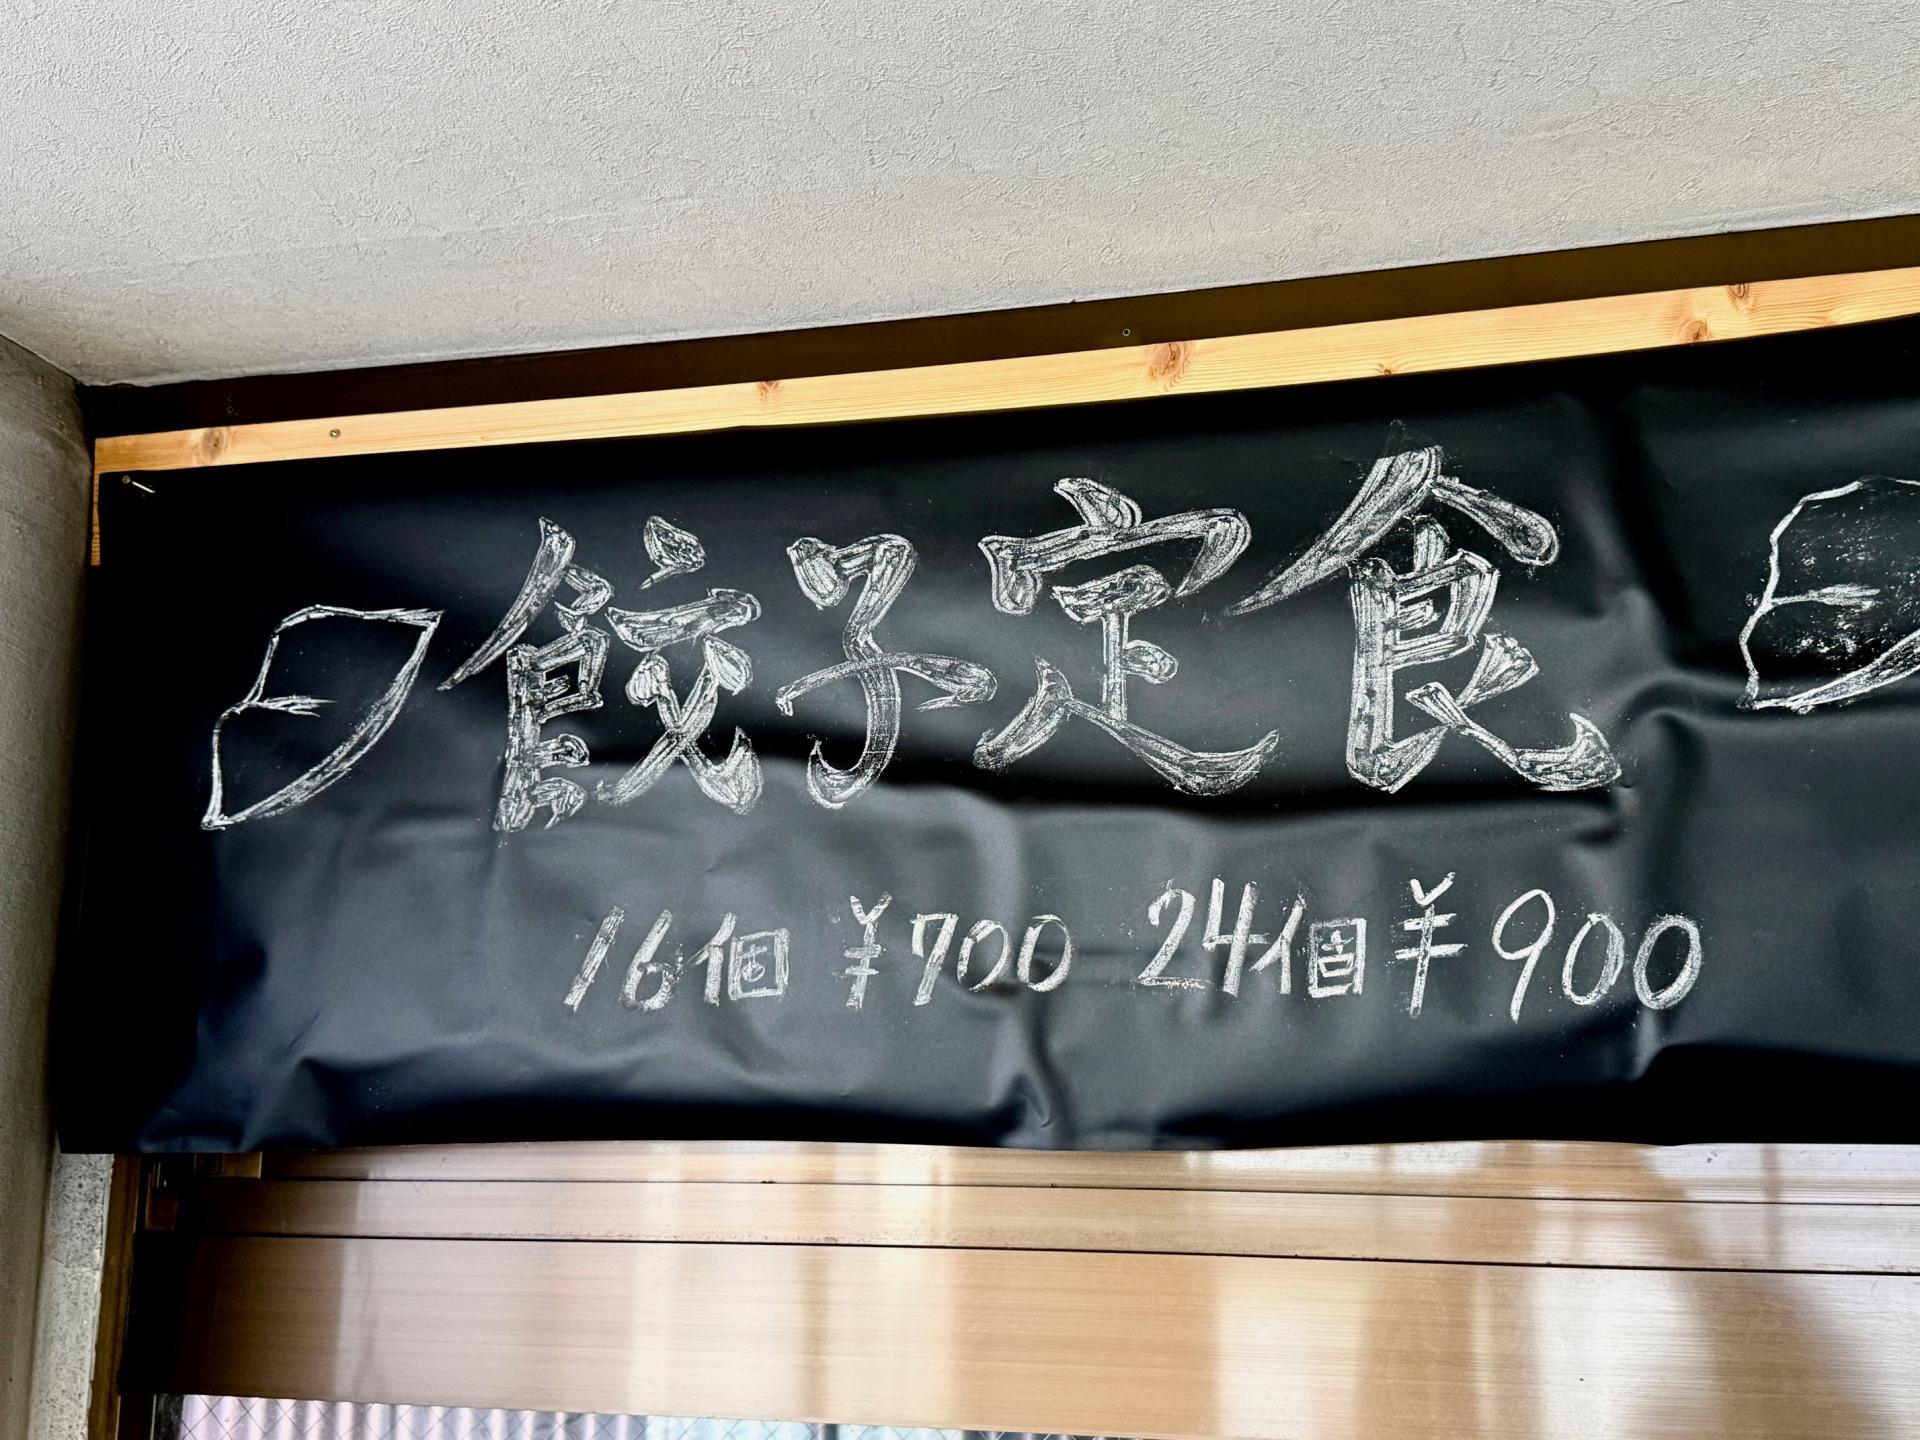 餃子定食
16個 ¥700 24個 ¥900